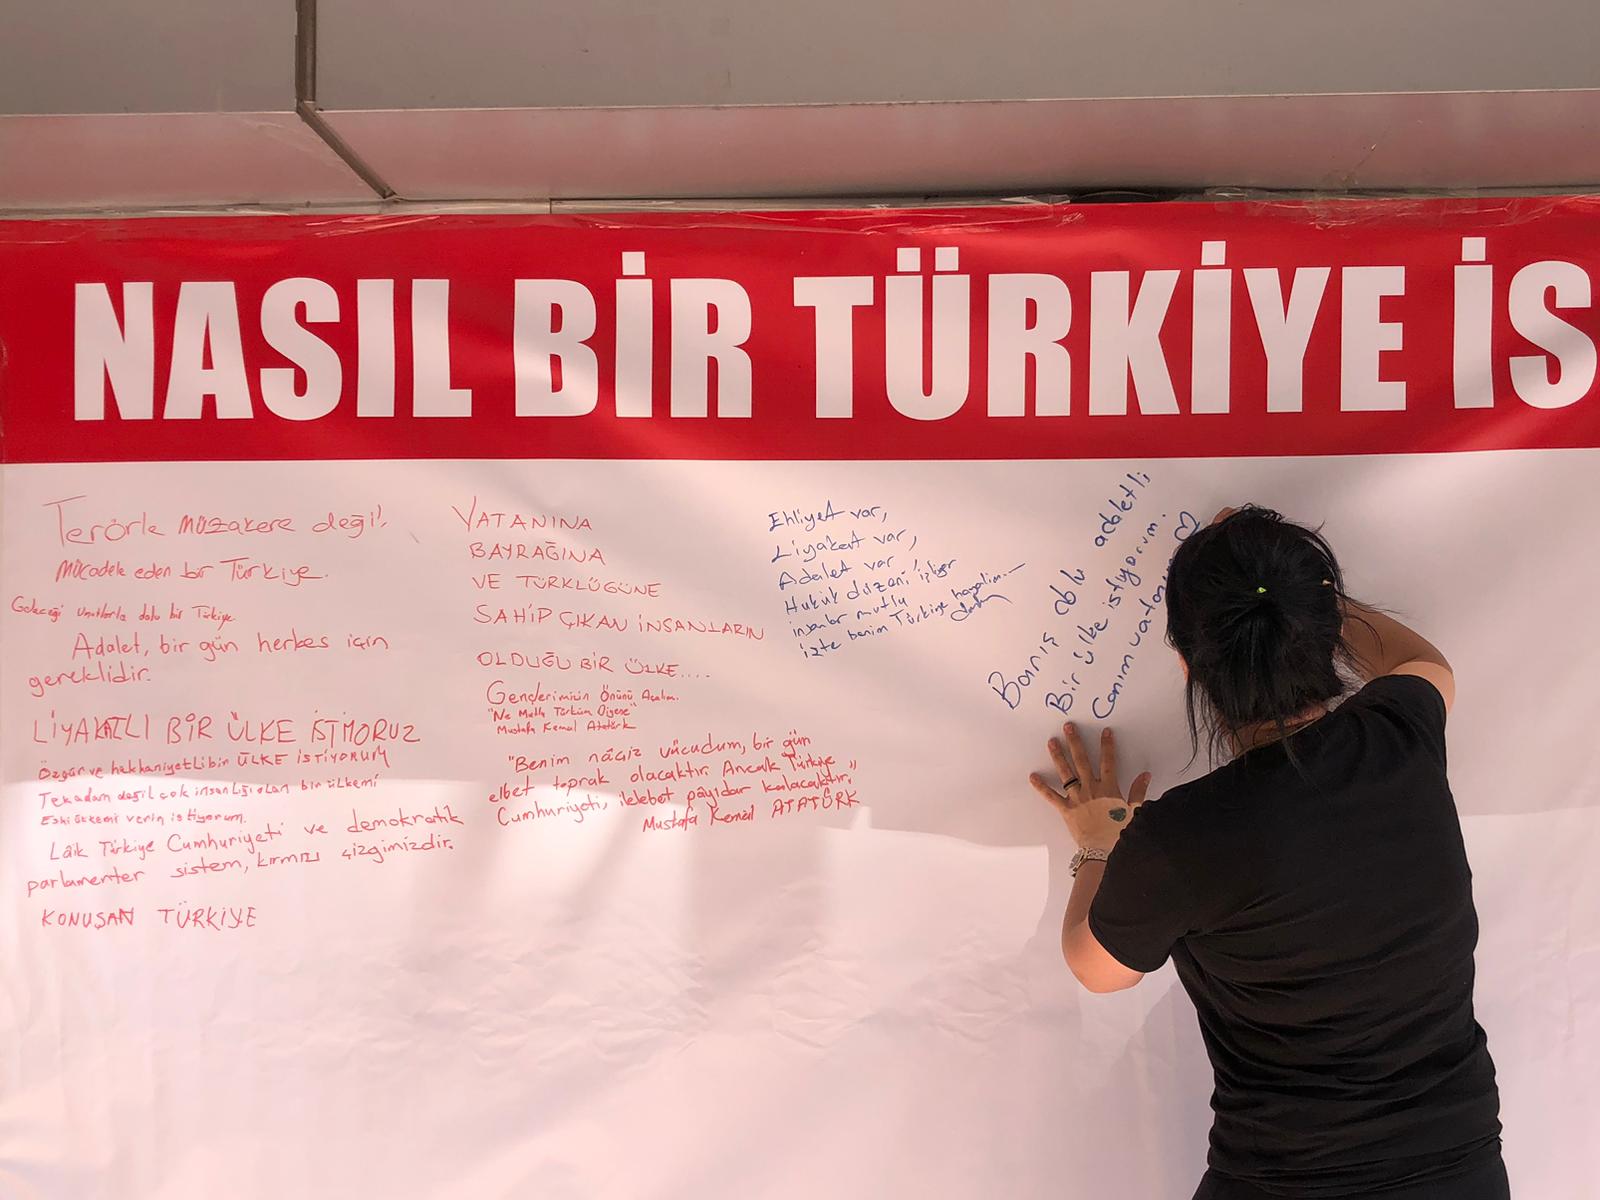 NASIL BİR TÜRKİYE İS
Terörle müzakere değil,
Mücadele eden bir Türkiye.
Geleceği umutlarla dolu bir Türkiye
Adalet, bir gün herkes için
gereklidir.
LİYAKATLI BİR ÜLKE İSTİYORUZ
Özgür ve hakkaniyetli bir ÜLKE İSTİYORUM
Tek adam değil çok insanlığı olan bir ülkemi
Eski ülkemi verin istiyorum.
Lâik Türkiye Cumhuriyeti ve demokratik
parlamenter sistem, kırmızı çizgimizdir.
KONUŞAN TÜRKİYE
VATANINA
BAYRAĞINA
VE TÜRKLÜĞÜNE
SAHİP ÇIKAN İNSANLARIN
OLDUĞU BİR ÜLKE....
Gençlerimizin Önünü Açalım.
"Ne Mutlu Türküm Diyene"
Mustafa Kemal Atatürk
"Benim nâçiz vücudum, bir gün
elbet toprak olacaktır. Ancak Türkiye
Cumhuriyeti, ilelebet pâyidar kalacaktır."
Mustafa Kemal ATATÜRK
Ehliyet var,
Liyakat var,
Adalet var
Hukuk düzeni işliyor
insanlar mutlu
işte benim Türkiye hayalim...
Barış dolu adaletli
Bir ülke istiyorum.
Canım